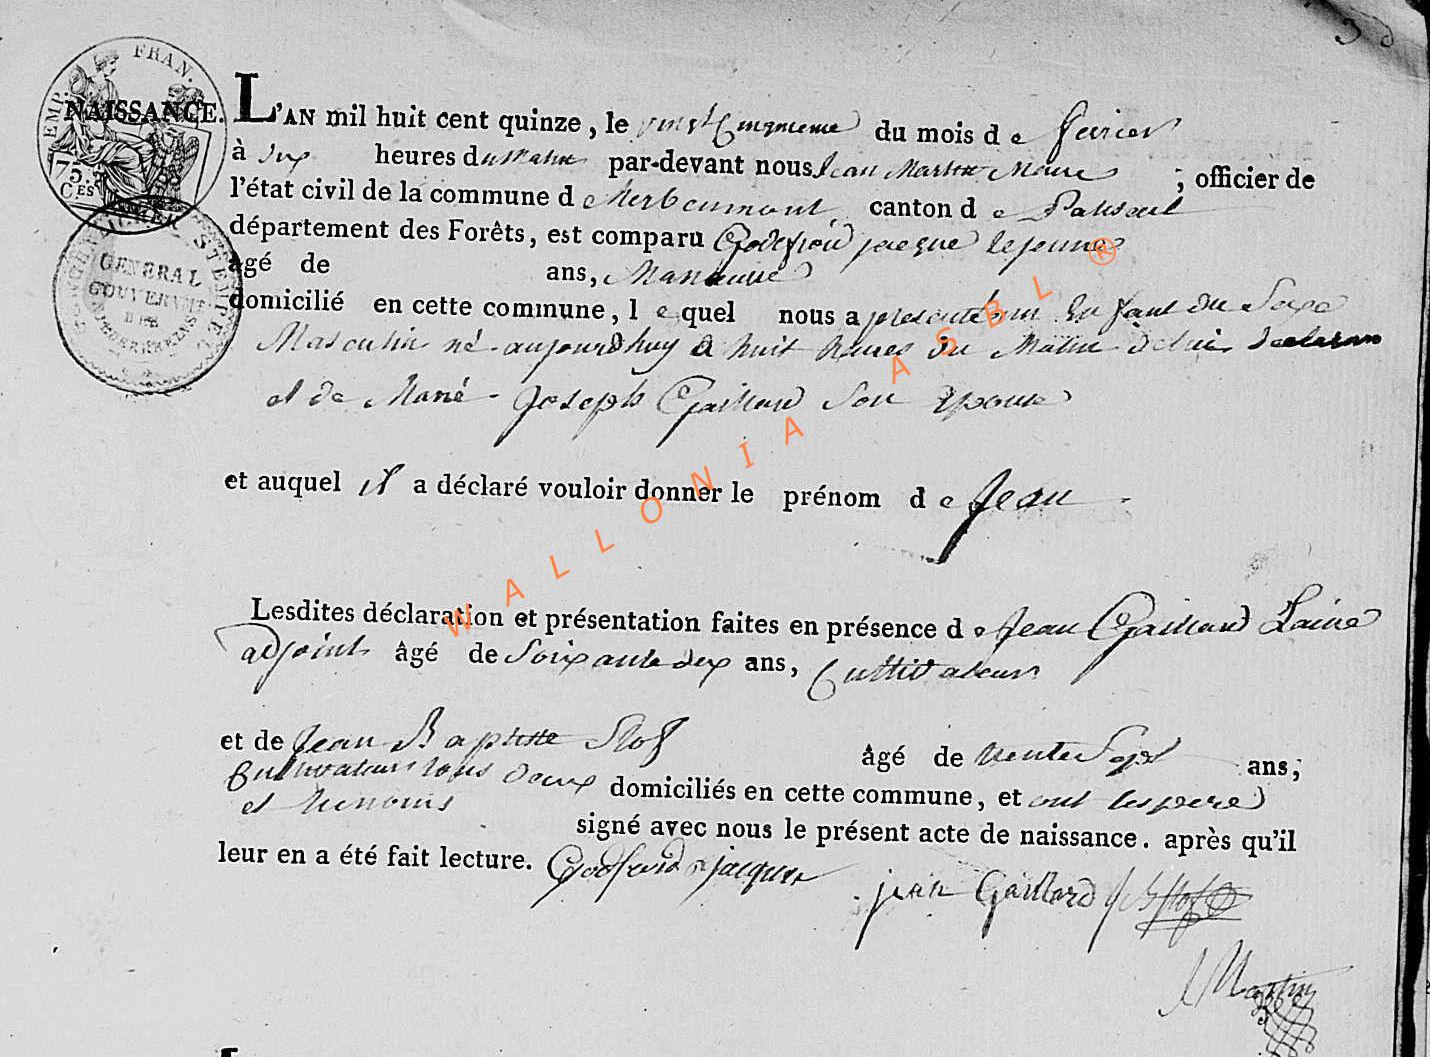 3
EMP. FRAN.
75. CES
GENERAL
GOUVERNEMENT
STEMPEL
NAISSANCE. L'AN mil huit cent quinze, le vingt Cinquieme du mois d e fevrier
à dix heures du Matin par-devant nous Jean Martin Maire ; officier de
l'état civil de la commune d e herbeumont, canton d e Paliseul
département des Forêts, est comparu Godefroid jacque le jeune
âgé de ans, Manouvrié
domicilié en cette commune, l e quel nous a presenté un Enfant du Sexe
Masculin né aujourdhuy a huit heures du Matin de lui declaran
et de Marie Joseph Gaillard Son Epouse
et auquel il a déclaré vouloir donner le prénom d e Jean
Lesdites déclaration et présentation faites en présence d e Jean Gaillard Lainé
adjoint âgé de Soixante dix ans, Cultivateur
et de Jean Baptiste Slof âgé de trente Sept ans,
Cultivateur tous deux domiciliés en cette commune, et ont les pere
et temoins
signé avec nous le présent acte de naissance. après qu'il
leur en a été fait lecture. Godfroid jacque
jean Gaillard
J Martin
WALLONIA ASBL ®